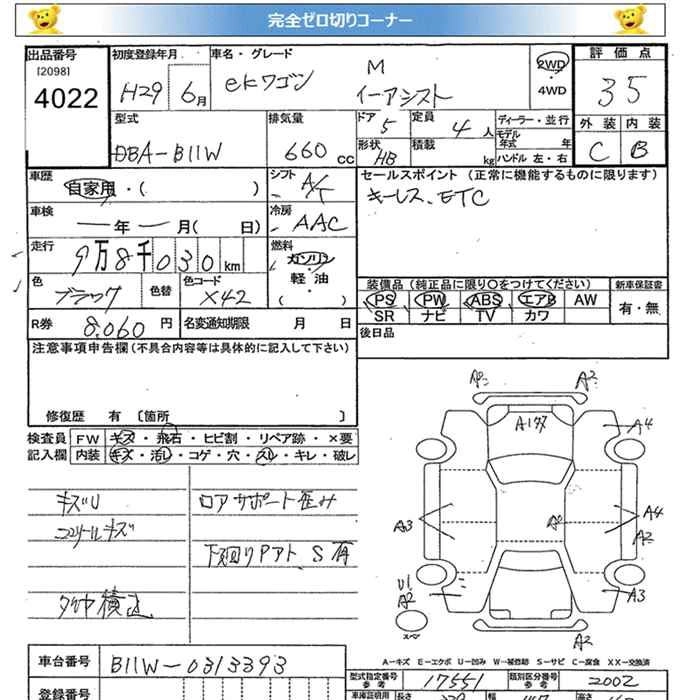 完全ゼロ切りコーナー
出品番号 初度登録年月 車名・グレード 評価点
[2098]
4022 H29 6月 ekワゴン M 2WD 35
イーアシスト 4WD
型式 排気量 ドア 定員 ディーラー・並行 外装 内装
DBA-B11W 660 cc 5 4人 モデル年式 年 C B
形状 積載
HB kg ハンドル 左・右
車歴 自家用・( ) シフト A/T セールスポイント (正常に機能するものに限ります)
キーレス、ETC
車検 年 月( 日) 冷房 AAC
走行 9万8千030km 燃料 ガソリン
軽油
( )
色 ブラック 色替 色コード X42
装備品 (純正品に限り〇をつけてください) 新車保証書
PS PW ABS エアB AW 有・無
SR ナビ TV カワ
R券 8,060円 名変通知期限 月 日 後日品
注意事項申告欄 (不具合内容等は具体的に記入して下さい)
修復歴 有 〔箇所 〕
検査員 FW キズ・飛石・ヒビ割・リペア跡・×要
記入欄 内装 キズ・汚レ・コゲ・穴・スレ・キレ・破レ
キズU ロアサポート歪み
コアリールキズ
下廻りPアト、S有
タイヤ積込
A2
A4
A3 A4
A2
U1
A2 A3
スペ
A2
A-キズ E-エクボ U-凹み W-補修跡 S-サビ C-腐食 XX-交換済
車台番号 B11W-0313393
型式指定番号 参考 17551 類別区分番号 参考 2002
登録番号
車庫証明用 長さ 幅 高さ